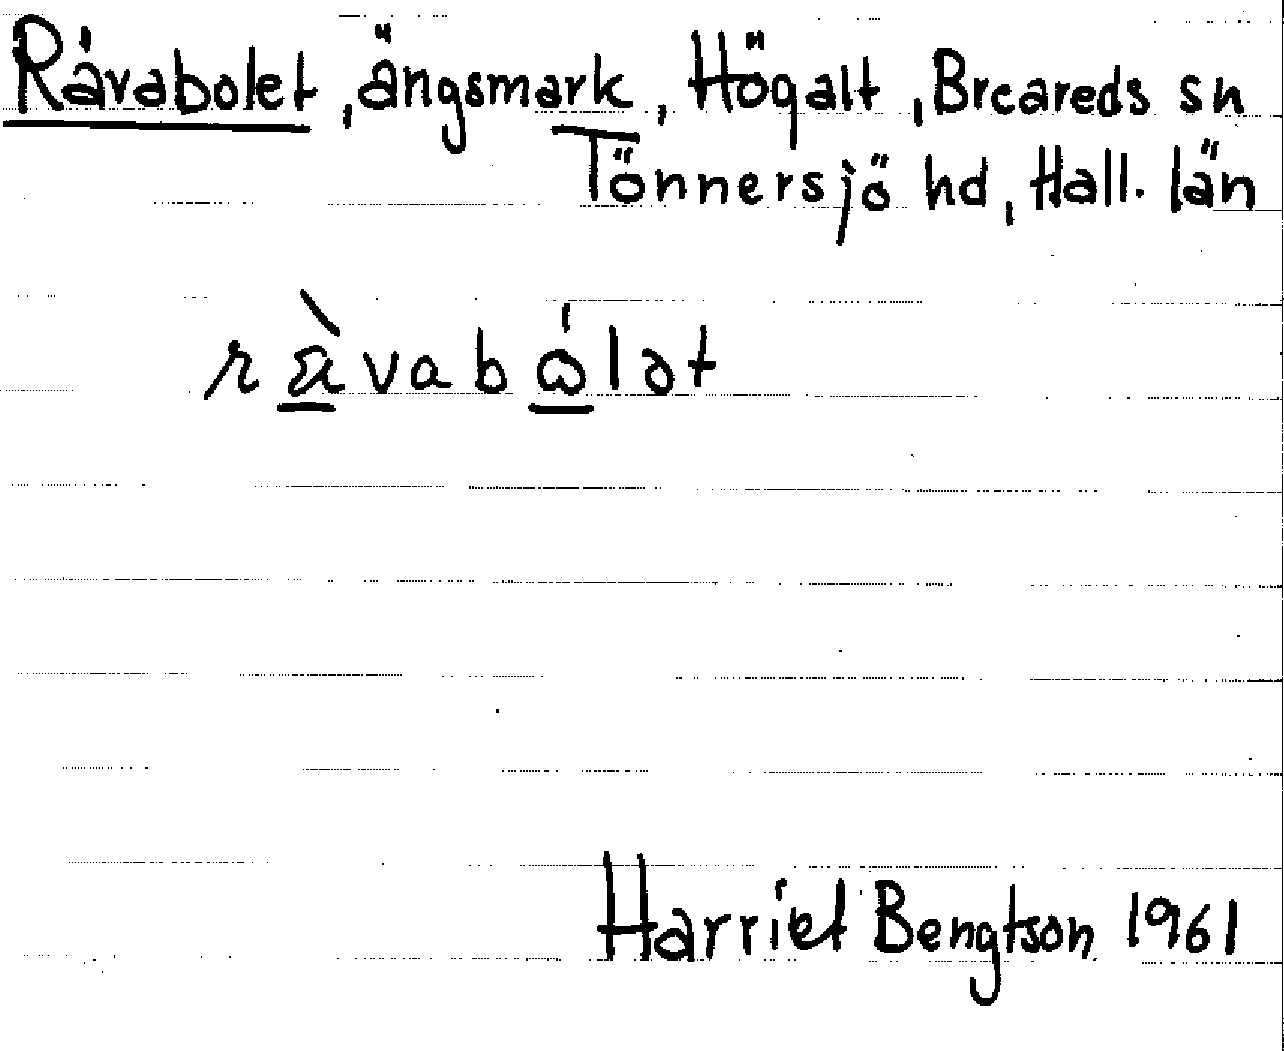 Råvabolet, ängsmark, Högalt, Breareds sn
Tönnersjö hd, Hall. län
Harriet Bengtson 1961